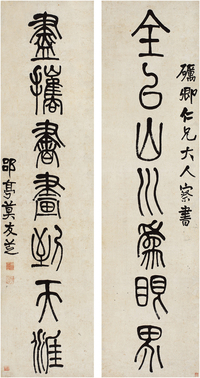 礪卿仁兄大人察書
全㠯山川爲眼界
盡攜書畫到天涯
郘亭莫友芝